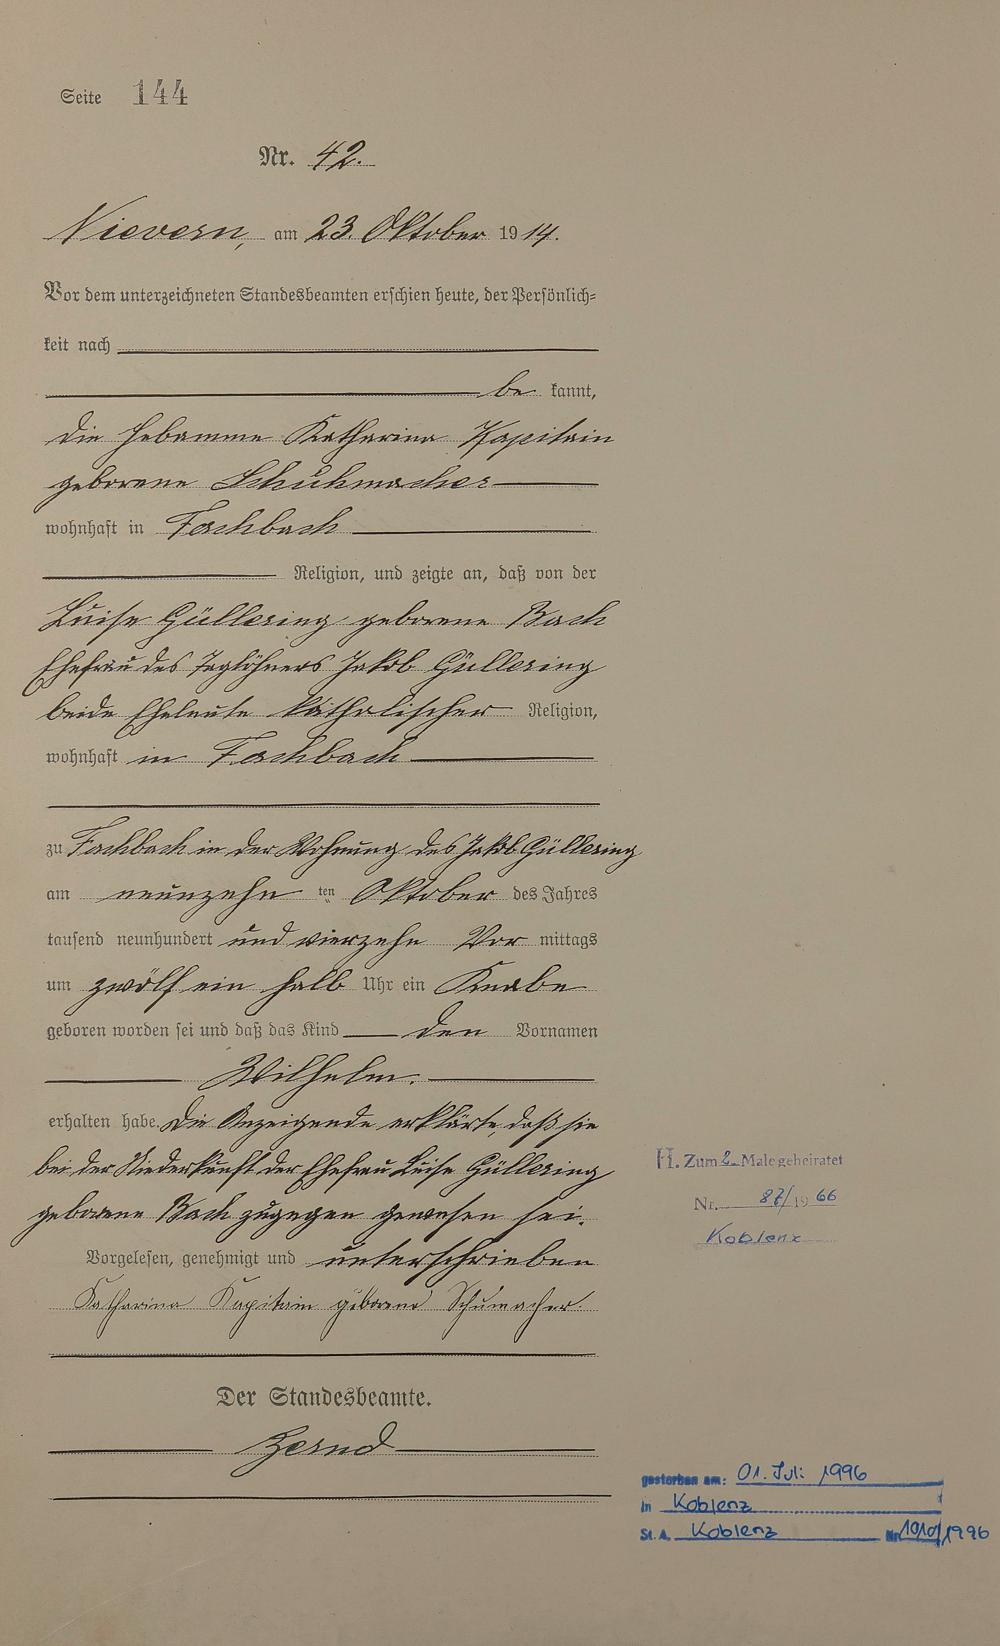 Seite 144
Nr. 42.
Nievern, am 23. Oktober 1914.
Vor dem unterzeichneten Standesbeamten erschien heute, der Persönlich-
keit nach
be kannt,
die Hebamme Katharina Kapitain
geborene Schuhmacher
wohnhaft in Fachbach
Religion, und zeigte an, daß von der
Luise Güllering geborene Bach
Ehefrau des Taglöhners Jakob Güllering
beide Eheleute katholischer Religion,
wohnhaft in Fachbach
zu Fachbach in der Wohnung des Jakob Güllering
am neunzehn ten Oktober des Jahres
tausend neunhundert und vierzehn Vor mittags
um zwölf ein halb Uhr ein Knabe
geboren worden sei und daß das Kind den Vornamen
Wilhelm.
erhalten habe. Die Anzeigende erklärte, daß sie
bei der Niederkunft der Ehefrau Luise Güllering
geborene Bach zugegen gewesen sei.
Vorgelesen, genehmigt und unterschrieben
Katharina Kapitain geborene Schumacher.
Der Standesbeamte.
H. Zum 2. Male geheiratet
Nr. 87/1966
Koblenz
gestorben am: 01. Juli 1996
in Koblenz
St.A. Koblenz Nr. 1010/1996